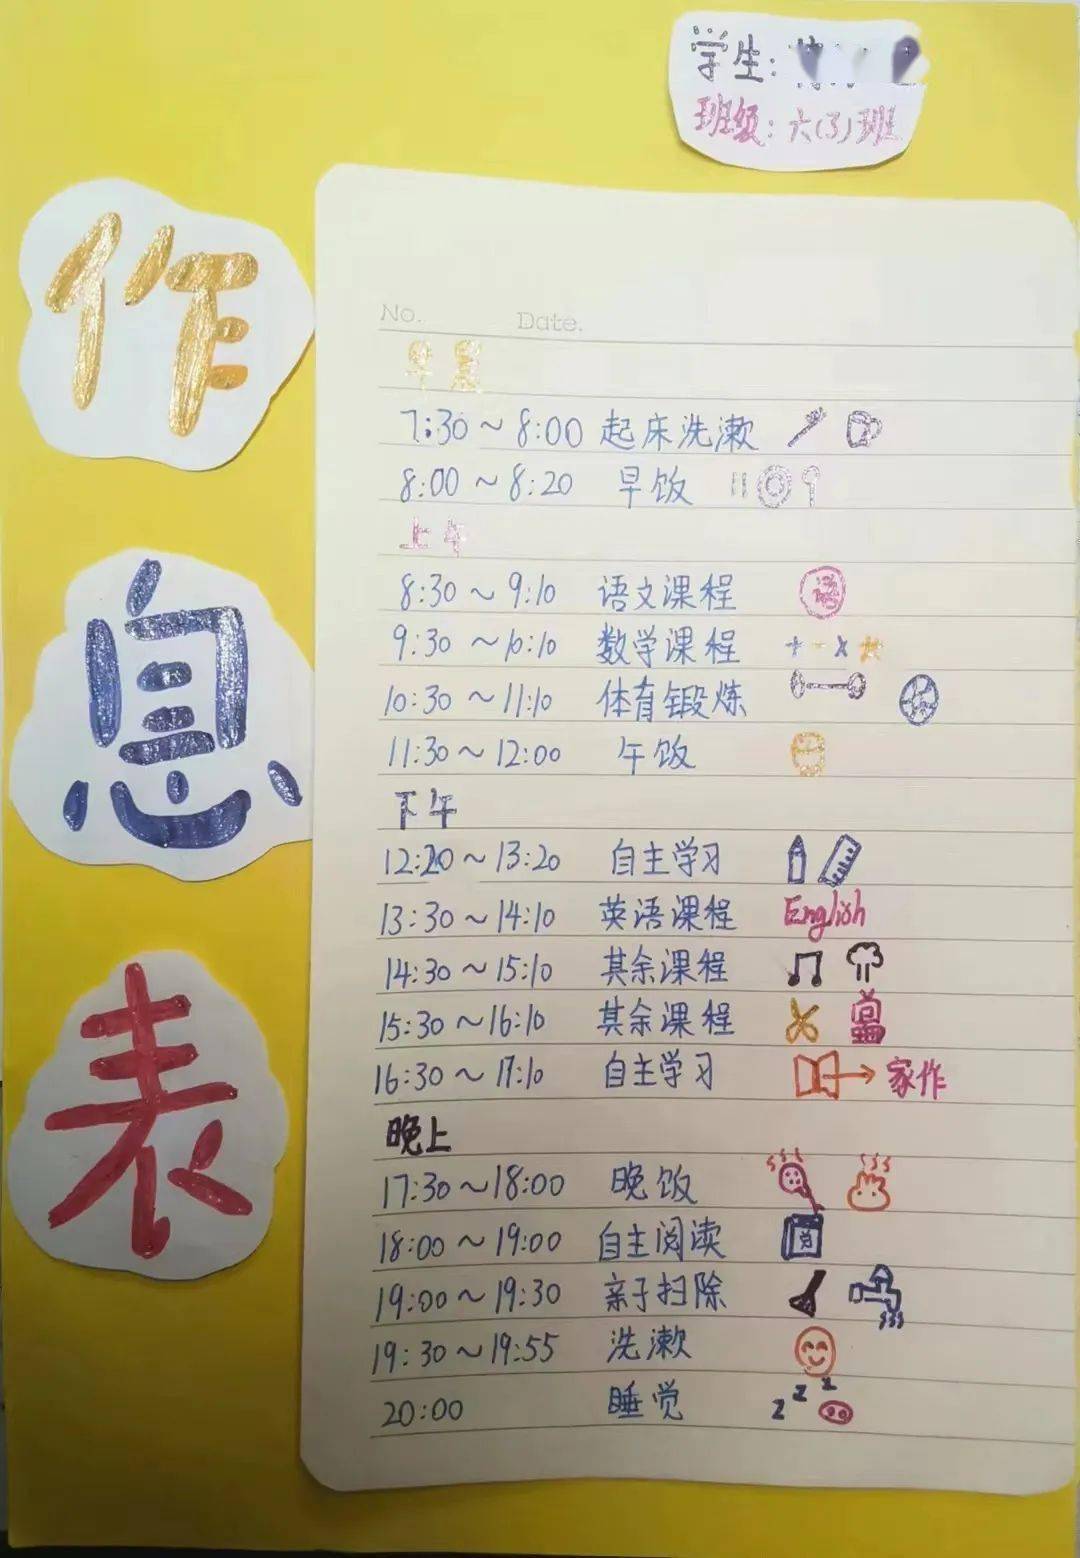 学生:
班级: 六(3)班
作息表
No. Date.
早晨
7:30 ~ 8:00 起床洗漱
8:00 ~ 8:20 早饭
上午
8:30 ~ 9:10 语文课程 语
9:30 ~ 10:10 数学课程 + - × ÷
10:30 ~ 11:10 体育锻炼
11:30 ~ 12:00 午饭
下午
12:20 ~ 13:20 自主学习
13:30 ~ 14:10 英语课程 English
14:30 ~ 15:10 其余课程
15:30 ~ 16:10 其余课程
16:30 ~ 17:10 自主学习 → 家作
晚上
17:30 ~ 18:00 晚饭
18:00 ~ 19:00 自主阅读
19:00 ~ 19:30 亲子扫除
19:30 ~ 19:55 洗漱
20:00 睡觉 z z z